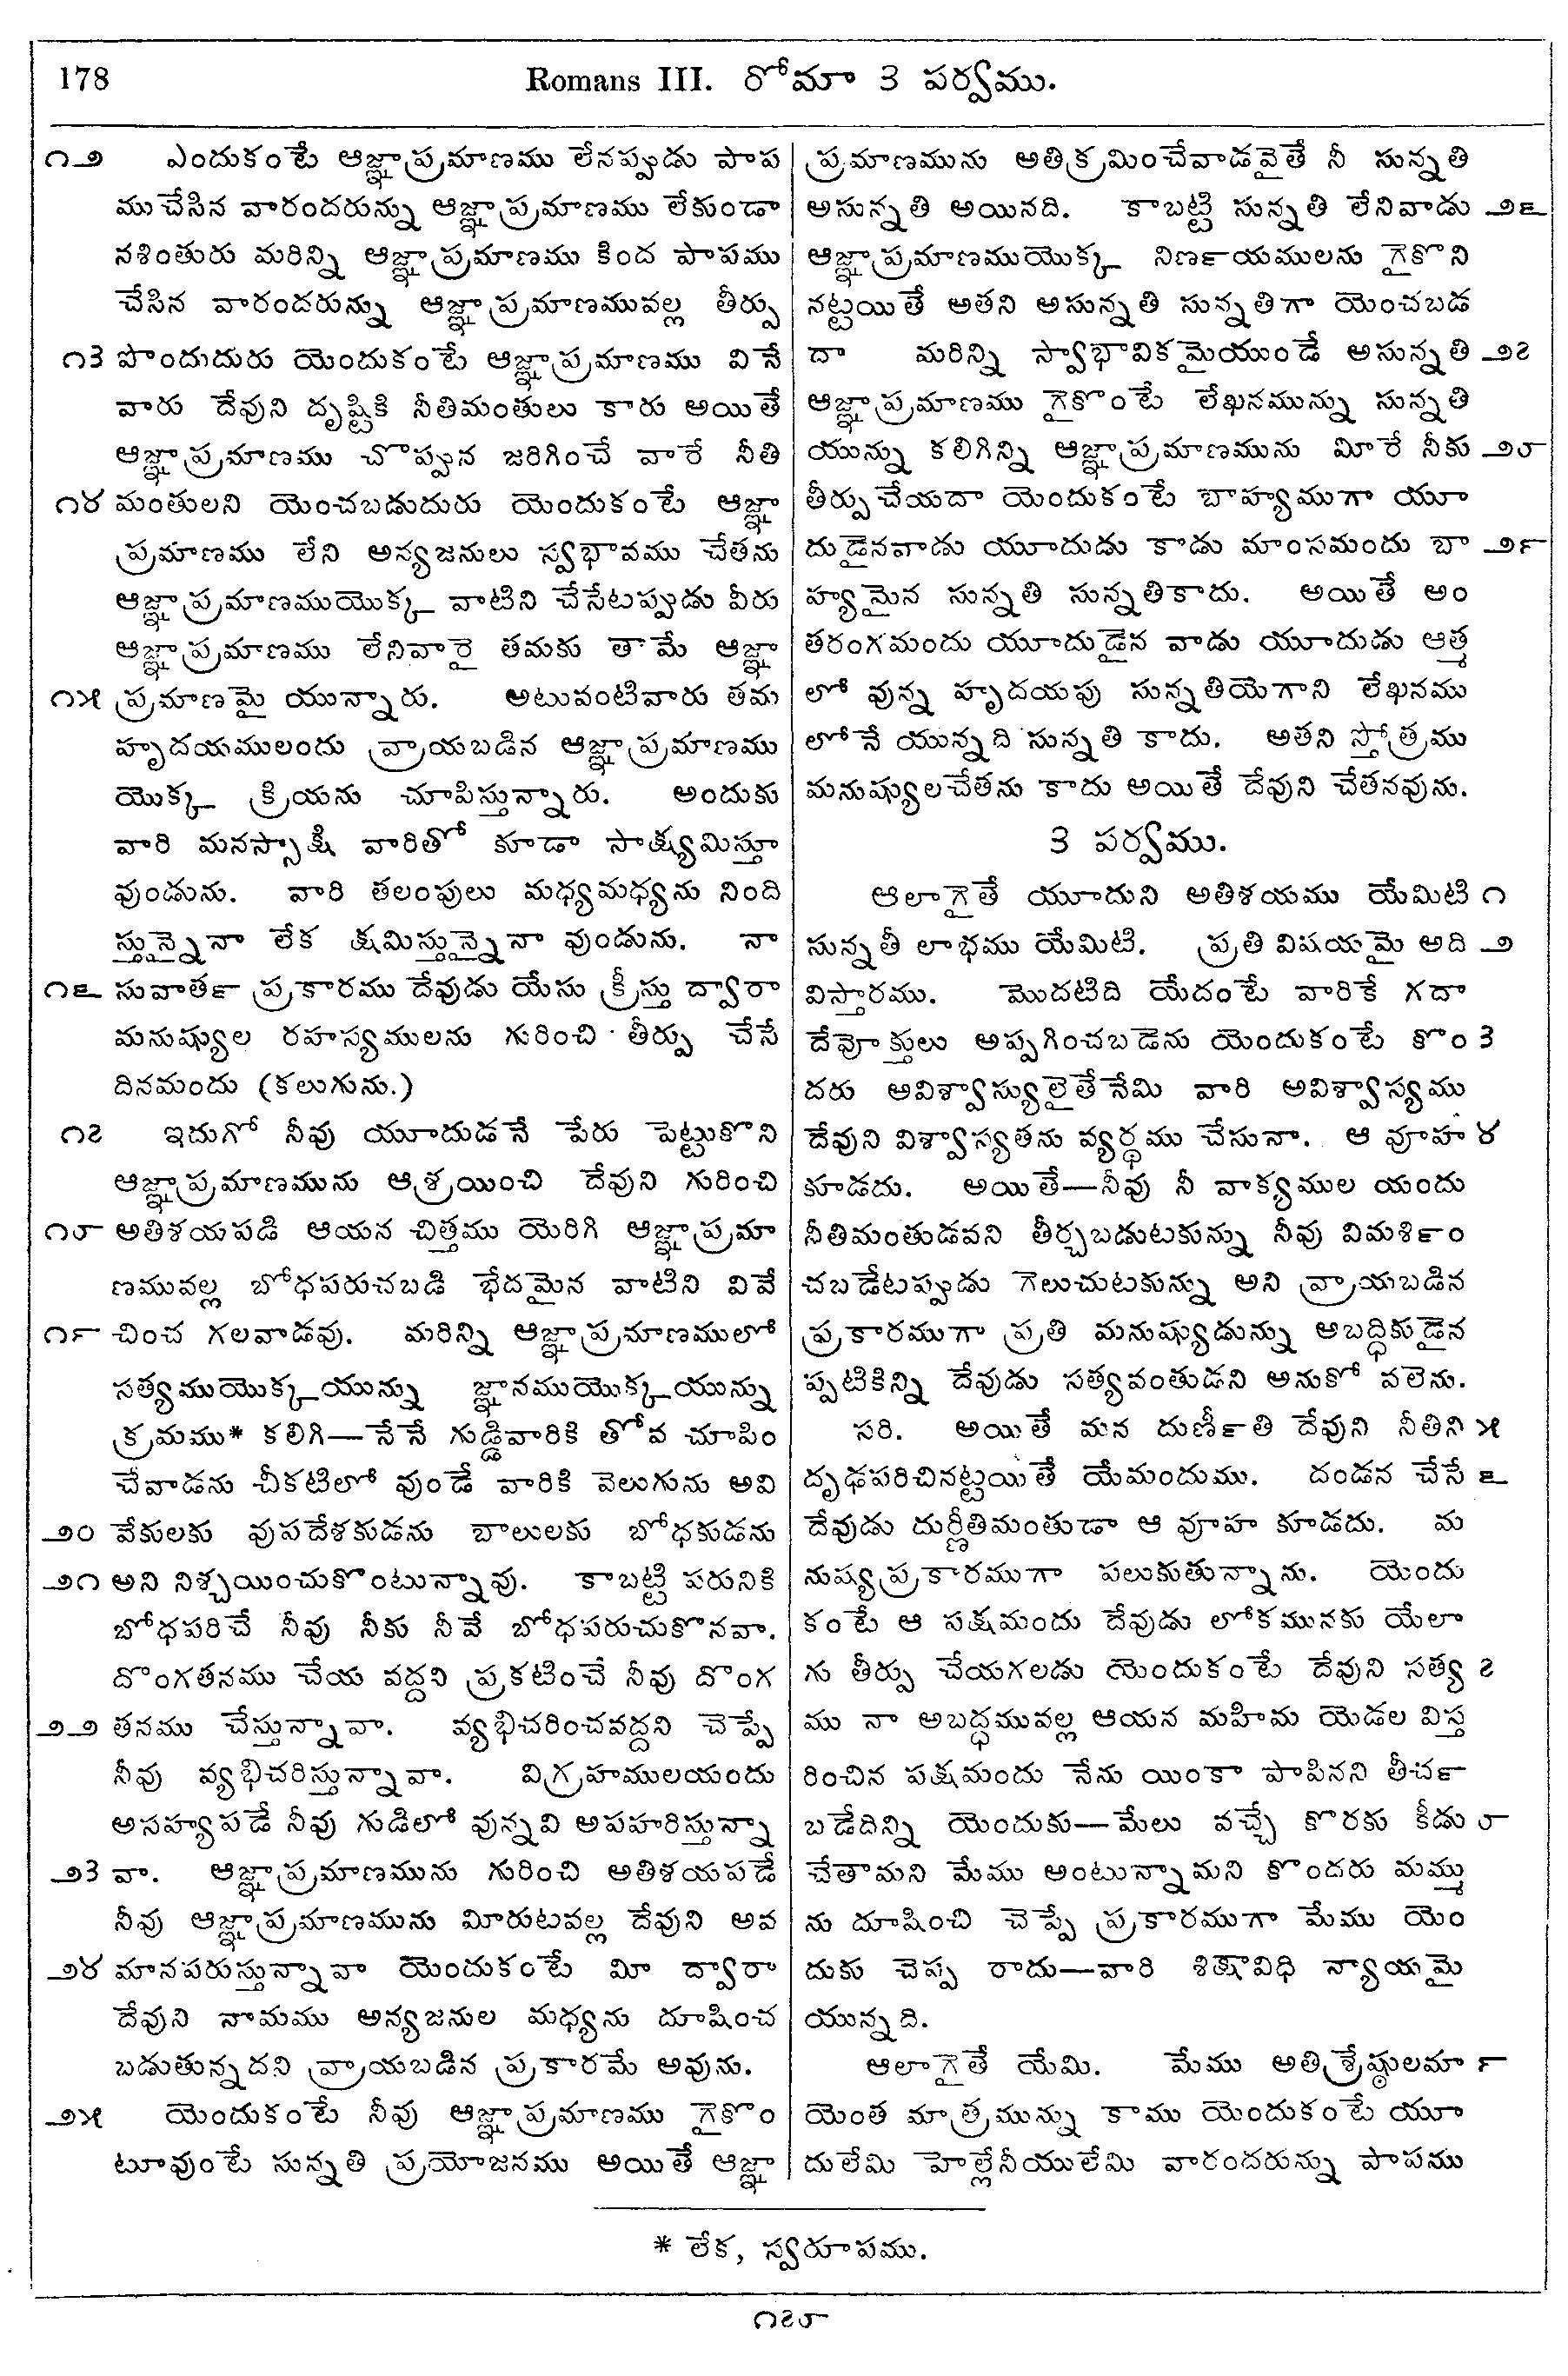 178 Romans III. రోమా 3 పర్వము.
౧౨ ఎందుకంటే ఆజ్ఞాప్రమాణము లేనప్పుడు పాప
ముచేసిన వారందరున్ను ఆజ్ఞాప్రమాణము లేకుండా
నశింతురు మరిన్ని ఆజ్ఞాప్రమాణము కింద పాపము
చేసిన వారందరున్ను ఆజ్ఞాప్రమాణమువల్ల తీర్పు
౧౩ పొందుదురు యెందుకంటే ఆజ్ఞాప్రమాణము వినే
వారు దేవుని దృష్టికి నీతిమంతులు కారు అయితే
ఆజ్ఞాప్రమాణము చొప్పున జరిగించే వారే నీతి
౧౪ మంతులని యెంచబడుదురు యెందుకంటే ఆజ్ఞా
ప్రమాణము లేని అన్యజనులు స్వభావము చేతను
ఆజ్ఞాప్రమాణముయొక్క వాటిని చేసేటప్పుడు వీరు
ఆజ్ఞాప్రమాణము లేనివారై తమకు తామే ఆజ్ఞా
౧౫ ప్రమాణమై యున్నారు. అటువంటివారు తమ
హృదయములందు వ్రాయబడిన ఆజ్ఞాప్రమాణము
యొక్క క్రియను చూపిస్తున్నారు. అందుకు
వారి మనస్సాక్షి వారితో కూడా సాక్ష్యమిస్తూ
వుండును. వారి తలంపులు మధ్యమధ్యను నింది
స్తున్నైనా లేక క్షమిస్తున్నైనా వుండును. నా
౧౬ సువార్త ప్రకారము దేవుడు యేసు క్రీస్తు ద్వారా
మనుష్యుల రహస్యములను గురించి తీర్పు చేసే
దినమందు (కలుగును.)
౧౭ ఇదుగో నీవు యూదుడనే పేరు పెట్టుకొని
ఆజ్ఞాప్రమాణమును ఆశ్రయించి దేవుని గురించి
౧౮ అతిశయపడి ఆయన చిత్తము యెరిగి ఆజ్ఞాప్రమా
ణమువల్ల బోధపరుచబడి భేదమైన వాటిని వివే
౧౯ చించ గలవాడవు. మరిన్ని ఆజ్ఞాప్రమాణములో
సత్యముయొక్కయున్ను జ్ఞానముయొక్కయున్ను
క్రమము* కలిగి—నేనే గుడ్డివారికి తోవ చూపిం
చేవాడను చీకటిలో వుండే వారికి వెలుగును అవి
౨౦ వేకులకు వుపదేశకుడను బాలులకు బోధకుడను
౨౧ అని నిశ్చయించుకొంటున్నావు. కాబట్టి పరునికి
బోధపరిచే నీవు నీకు నీవే బోధపరుచుకొనవా.
దొంగతనము చేయ వద్దని ప్రకటించే నీవు దొంగ
౨౨ తనము చేస్తున్నావా. వ్యభిచరించవద్దని చెప్పే
నీవు వ్యభిచరిస్తున్నావా. విగ్రహములయందు
అసహ్యపడే నీవు గుడిలో వున్నవి అపహరిస్తున్నా
౨౩ వా. ఆజ్ఞాప్రమాణమును గురించి అతిశయపడే
నీవు ఆజ్ఞాప్రమాణమును మీరుటవల్ల దేవుని అవ
౨౪ మానపరుస్తున్నావా యెందుకంటే మీ ద్వారా
దేవుని నామము అన్యజనుల మధ్యను దూషించ
బడుతున్నదని వ్రాయబడిన ప్రకారమే అవును.
౨౫ యెందుకంటే నీవు ఆజ్ఞాప్రమాణము గైకొం
టూవుంటే సున్నతి ప్రయోజనము అయితే ఆజ్ఞా
ప్రమాణమును అతిక్రమించేవాడవైతే నీ సున్నతి
అసున్నతి అయినది. కాబట్టి సున్నతి లేనివాడు ౨౬
ఆజ్ఞాప్రమాణముయొక్క నిర్ణయములను గైకొని
నట్టయితే అతని అసున్నతి సున్నతిగా యెంచబడ
దా మరిన్ని స్వాభావికమైయుండే అసున్నతి ౨౭
ఆజ్ఞాప్రమాణము గైకొంటే లేఖనమున్ను సున్నతి
యున్ను కలిగిన్ని ఆజ్ఞాప్రమాణమును మీరే నీకు ౨౮
తీర్పుచేయదా యెందుకంటే బాహ్యముగా యూ
దుడైనవాడు యూదుడు కాడు మాంసమందు బా ౨౯
హ్యమైన సున్నతి సున్నతికాదు. అయితే అం
తరంగమందు యూదుడైన వాడు యూదుడు ఆత్మ
లో వున్న హృదయపు సున్నతియెగాని లేఖనము
లోనే యున్నది సున్నతి కాదు. అతని స్తోత్రము
మనుష్యులచేతను కాదు అయితే దేవుని చేతనవును.
3 పర్వము.
ఆలాగైతే యూదుని అతిశయము యేమిటి ౧
సున్నతీ లాభము యేమిటి. ప్రతి విషయమై అది ౨
విస్తారము. మొదటిది యేదంటే వారికే గదా
దేవోక్తులు అప్పగించబడెను యెందుకంటే కొం ౩
దరు అవిశ్వాస్యులైతేనేమి వారి అవిశ్వాస్యము
దేవుని విశ్వాస్యతను వ్యర్థము చేసునా. ఆ వూహ ౪
కూడదు. అయితే—నీవు నీ వాక్యముల యందు
నీతిమంతుడవని తీర్చబడుటకున్ను నీవు విమర్శిం
చబడేటప్పుడు గెలుచుటకున్ను అని వ్రాయబడిన
ప్రకారముగా ప్రతి మనుష్యుడున్ను అబద్ధికుడైన
ప్పటికిన్ని దేవుడు సత్యవంతుడని అనుకో వలెను.
సరి. అయితే మన దుర్ణీతి దేవుని నీతిని ౫
దృఢపరిచినట్టయితే యేమందుము. దండన చేసే ౬
దేవుడు దుర్ణీతిమంతుడా ఆ వూహ కూడదు. మ
నుష్యప్రకారముగా పలుకుతున్నాను. యెందు
కంటే ఆ పక్షమందు దేవుడు లోకమునకు యేలా
గు తీర్పు చేయగలడు యెందుకంటే దేవుని సత్య ౭
ము నా అబద్ధమువల్ల ఆయన మహిమ యెడల విస్త
రించిన పక్షమందు నేను యింకా పాపినని తీర్చ
బడేదిన్ని యెందుకు—మేలు వచ్చే కొరకు కీడు ౮
చేతామని మేము అంటున్నామని కొందరు మమ్ము
ను దూషించి చెప్పే ప్రకారముగా మేము యెం
దుకు చెప్ప రాదు—వారి శిక్షావిధి న్యాయమై
యున్నది.
ఆలాగైతే యేమి. మేము అతిశ్రేష్ఠులమా ౯
యెంత మాత్రమున్ను కాము యెందుకంటే యూ
దులేమి హెల్లేనీయులేమి వారందరున్ను పాపము
* లేక, స్వరూపము.
౧౭౮